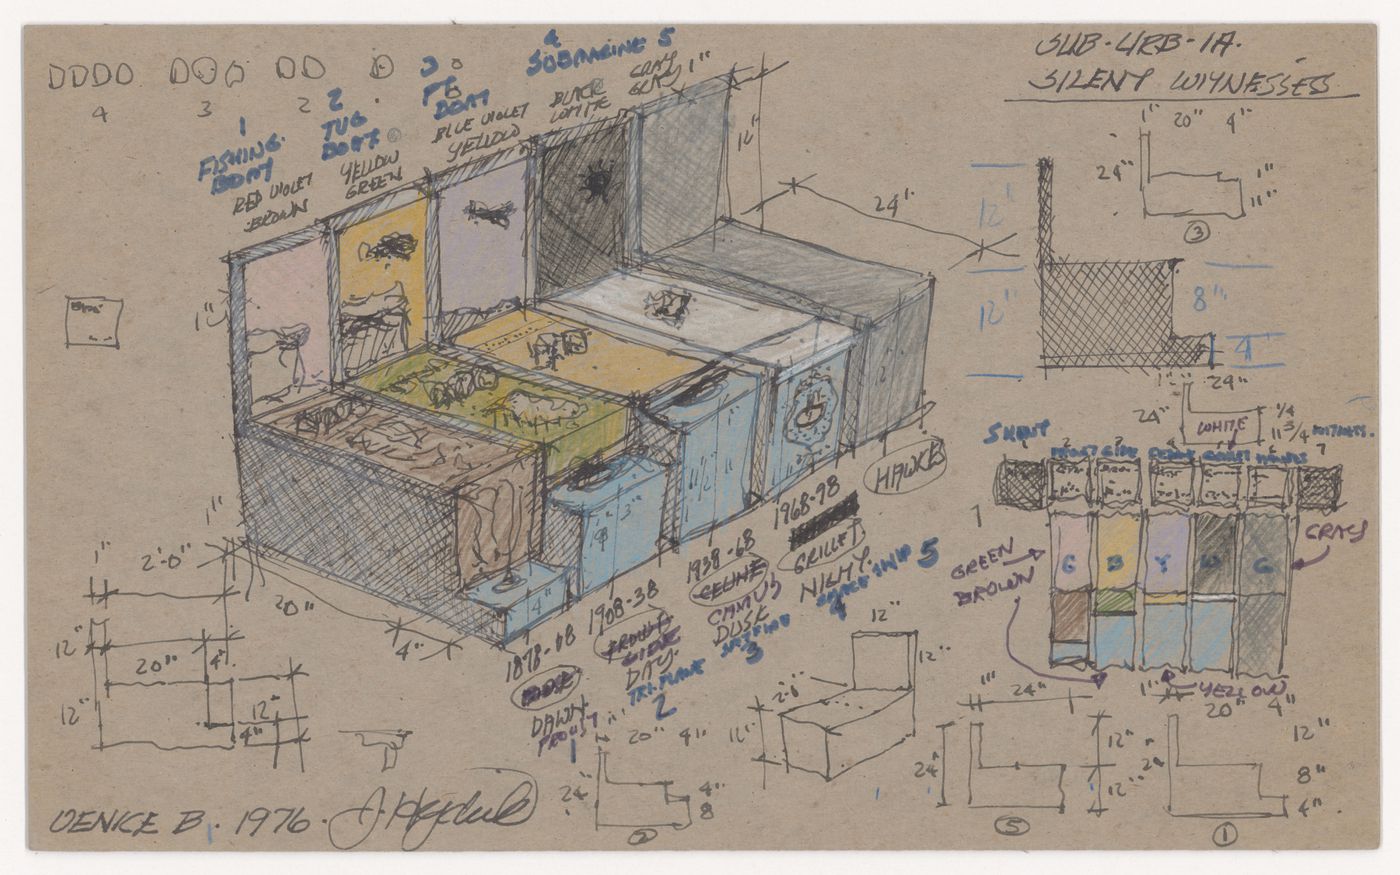 SUB·URB·IA.
SILENT WITNESSES
4
3
2
1
FISHING
BOAT
RED VIOLET
BROWN
2
TUG
BOAT
YELLOW
GREEN
3
PT
BOAT
BLUE VIOLET
YELLOW
4
SUBMARINE 5
BLACK
WHITE
GRAY
GRAY
1"
12"
24"
1" 20" 4"
24"
1"
11"
3
12"
12"
8"
4"
1" 24"
24"
WHITE
1/4
11 3/4
SILENT
WITNESS.
7
G
B
Y
W
G
GRAY
GREEN
BROWN
YELLOW
HAWKES
1968-98
GRILLET
NIGHT
SPACE SHIP 5
4
1938-68
CELINE
CAMUS
DUSK
SPITFIRE
3
1908-38
PROUST
GIDE
DAY.
TRI-PLANE
2
1878-08
DAWN.
PROUST
1
1"
2'-0"
20"
4"
12"
20" 4"
12"
12"
4"
20" 4"
24"
4"
8
2
12"
12"
2'-0"
12"
1" 24"
24"
12"
12"
5
1" 20" 4"
12"
8"
4"
1
VENICE B. 1976. J. Hejduk